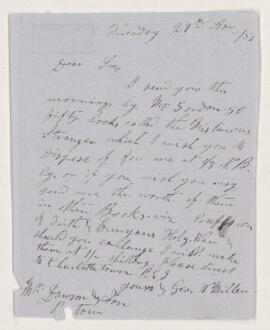 Tuesday 29th
Dear Sir
I send you this
morning by Mr Gordon 50
fifty books called the
Stranger which I wish you to
dispose of for me at
or if you wish you may
send me the worth of them
in other Books viz
of Faith & Bunyans Holy War &
should you exchange I will make
them at 1/ shilling. Please direct
to Charlottetown P.E.I
yours & Geo W Millen
Dawson & Son